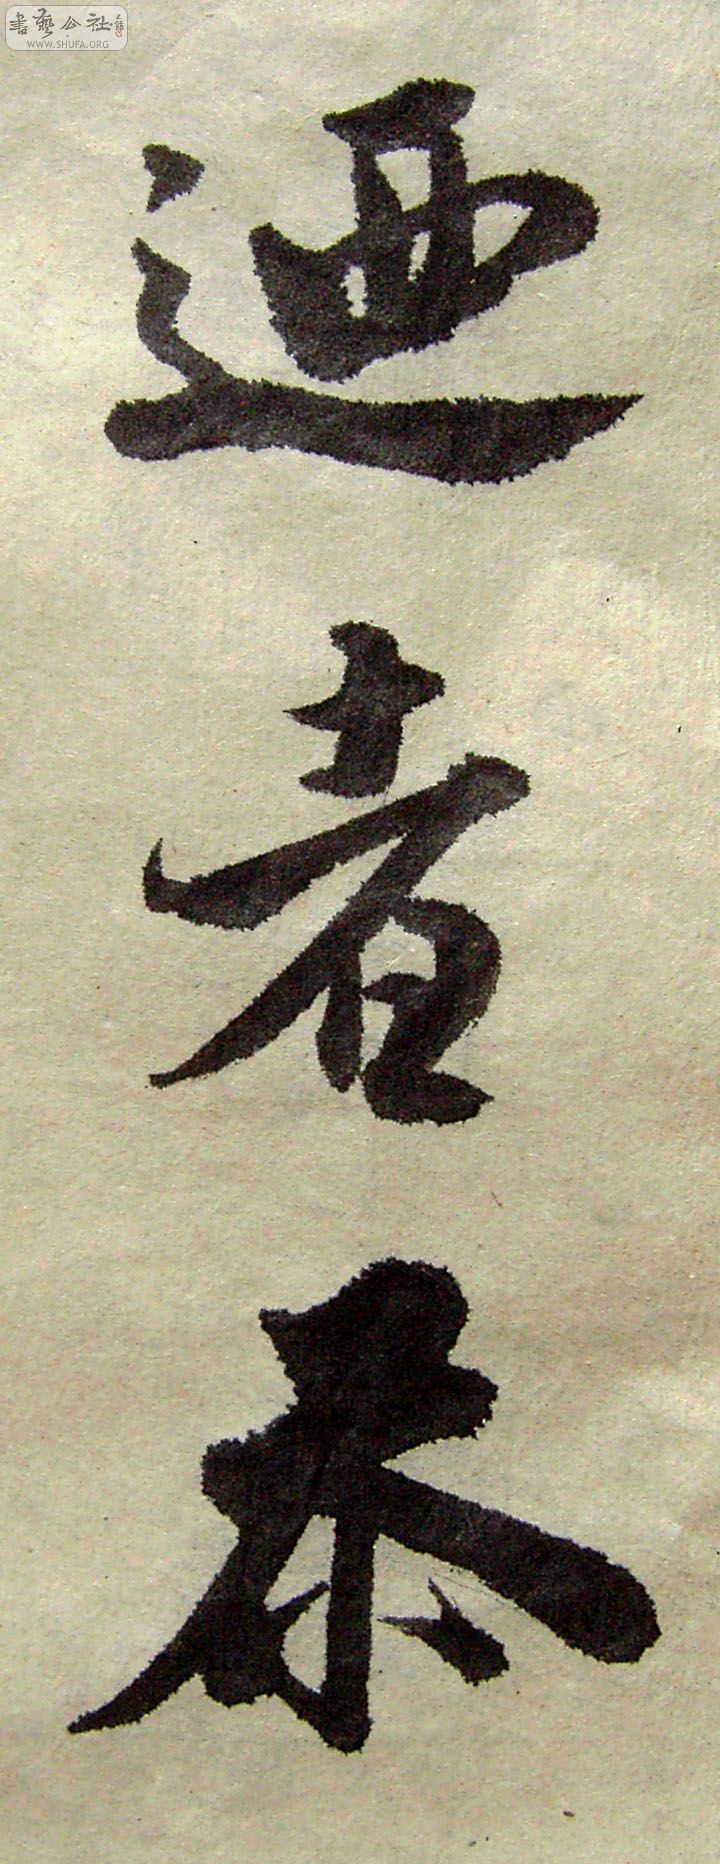 書藝公社
WWW.SHUFA.ORG
迺
者
泰